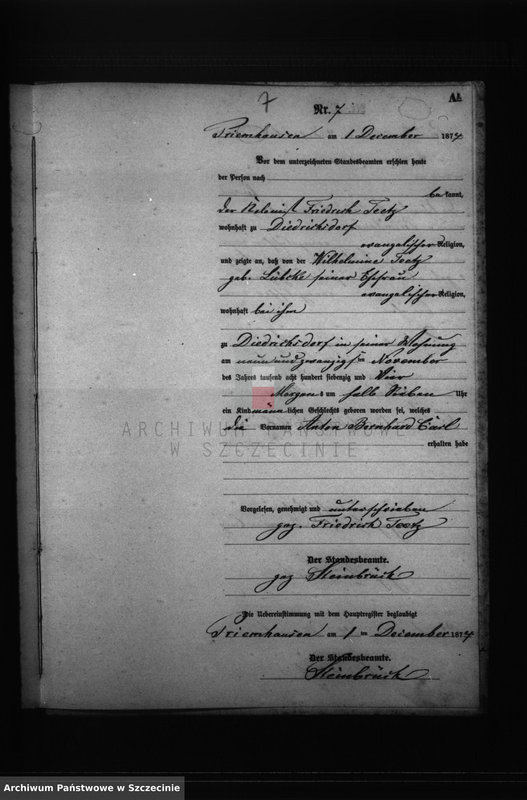 7
A
Nr. 7
Priemhausen am 1 December 1874
Vor dem unterzeichneten Standesbeamten erschien heute
der Person nach
bekannt,
der Kolonist Friedrich Teetz
wohnhaft zu Diedrichsdorf
evangelischer Religion,
und zeigte an, daß von der Wilhelmine Teetz
geb. Lübcke seiner Ehefrau
evangelischer Religion,
wohnhaft bei ihm
zu Diedrichsdorf in seiner Wohnung
am neun und zwanzigsten November
des Jahres tausend acht hundert siebenzig und Vier
Morgens um halb Sieben Uhr
ein Kind männlichen Geschlechts geboren worden sei, welches
die Vornamen Anton Bernhard Carl
ARCHIWUM PAŃSTWOWE
erhalten habe
W SZCZECINIE
Vorgelesen, genehmigt und unterschrieben
gez. Friedrich Teetz
Der Standesbeamte.
gez Steinbrück
Die Uebereinstimmung mit dem Hauptregister beglaubigt
Priemhausen am 1 ten December 1874
Der Standesbeamte.
Steinbrück
Archiwum Państwowe w Szczecinie